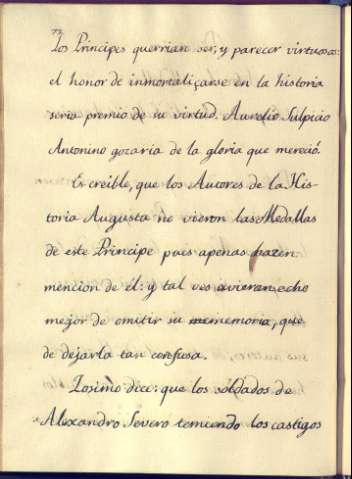 72
Los Principes querrian ser, y parecer virtuosos:
el honor de inmortaliçarse en la historia
seria premio de su virtud. Aurelio Sulpicio
Antonino gozaria de la gloria que mereciò.
Es creible, que los Autores de la His-
toria Augusta no vieron las Medallas
de este Principe pues apenas hazen
mencion de èl: y tal ves avieran echo
mejor de omitir su memoria, que
de dejarla tan confusa.
Zosimo dice: que los soldados de
Alexandro Severo temiendo los castigos